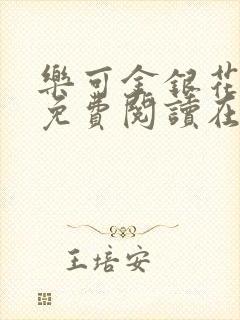 樂可金銀花
免費閱讀在
王培安